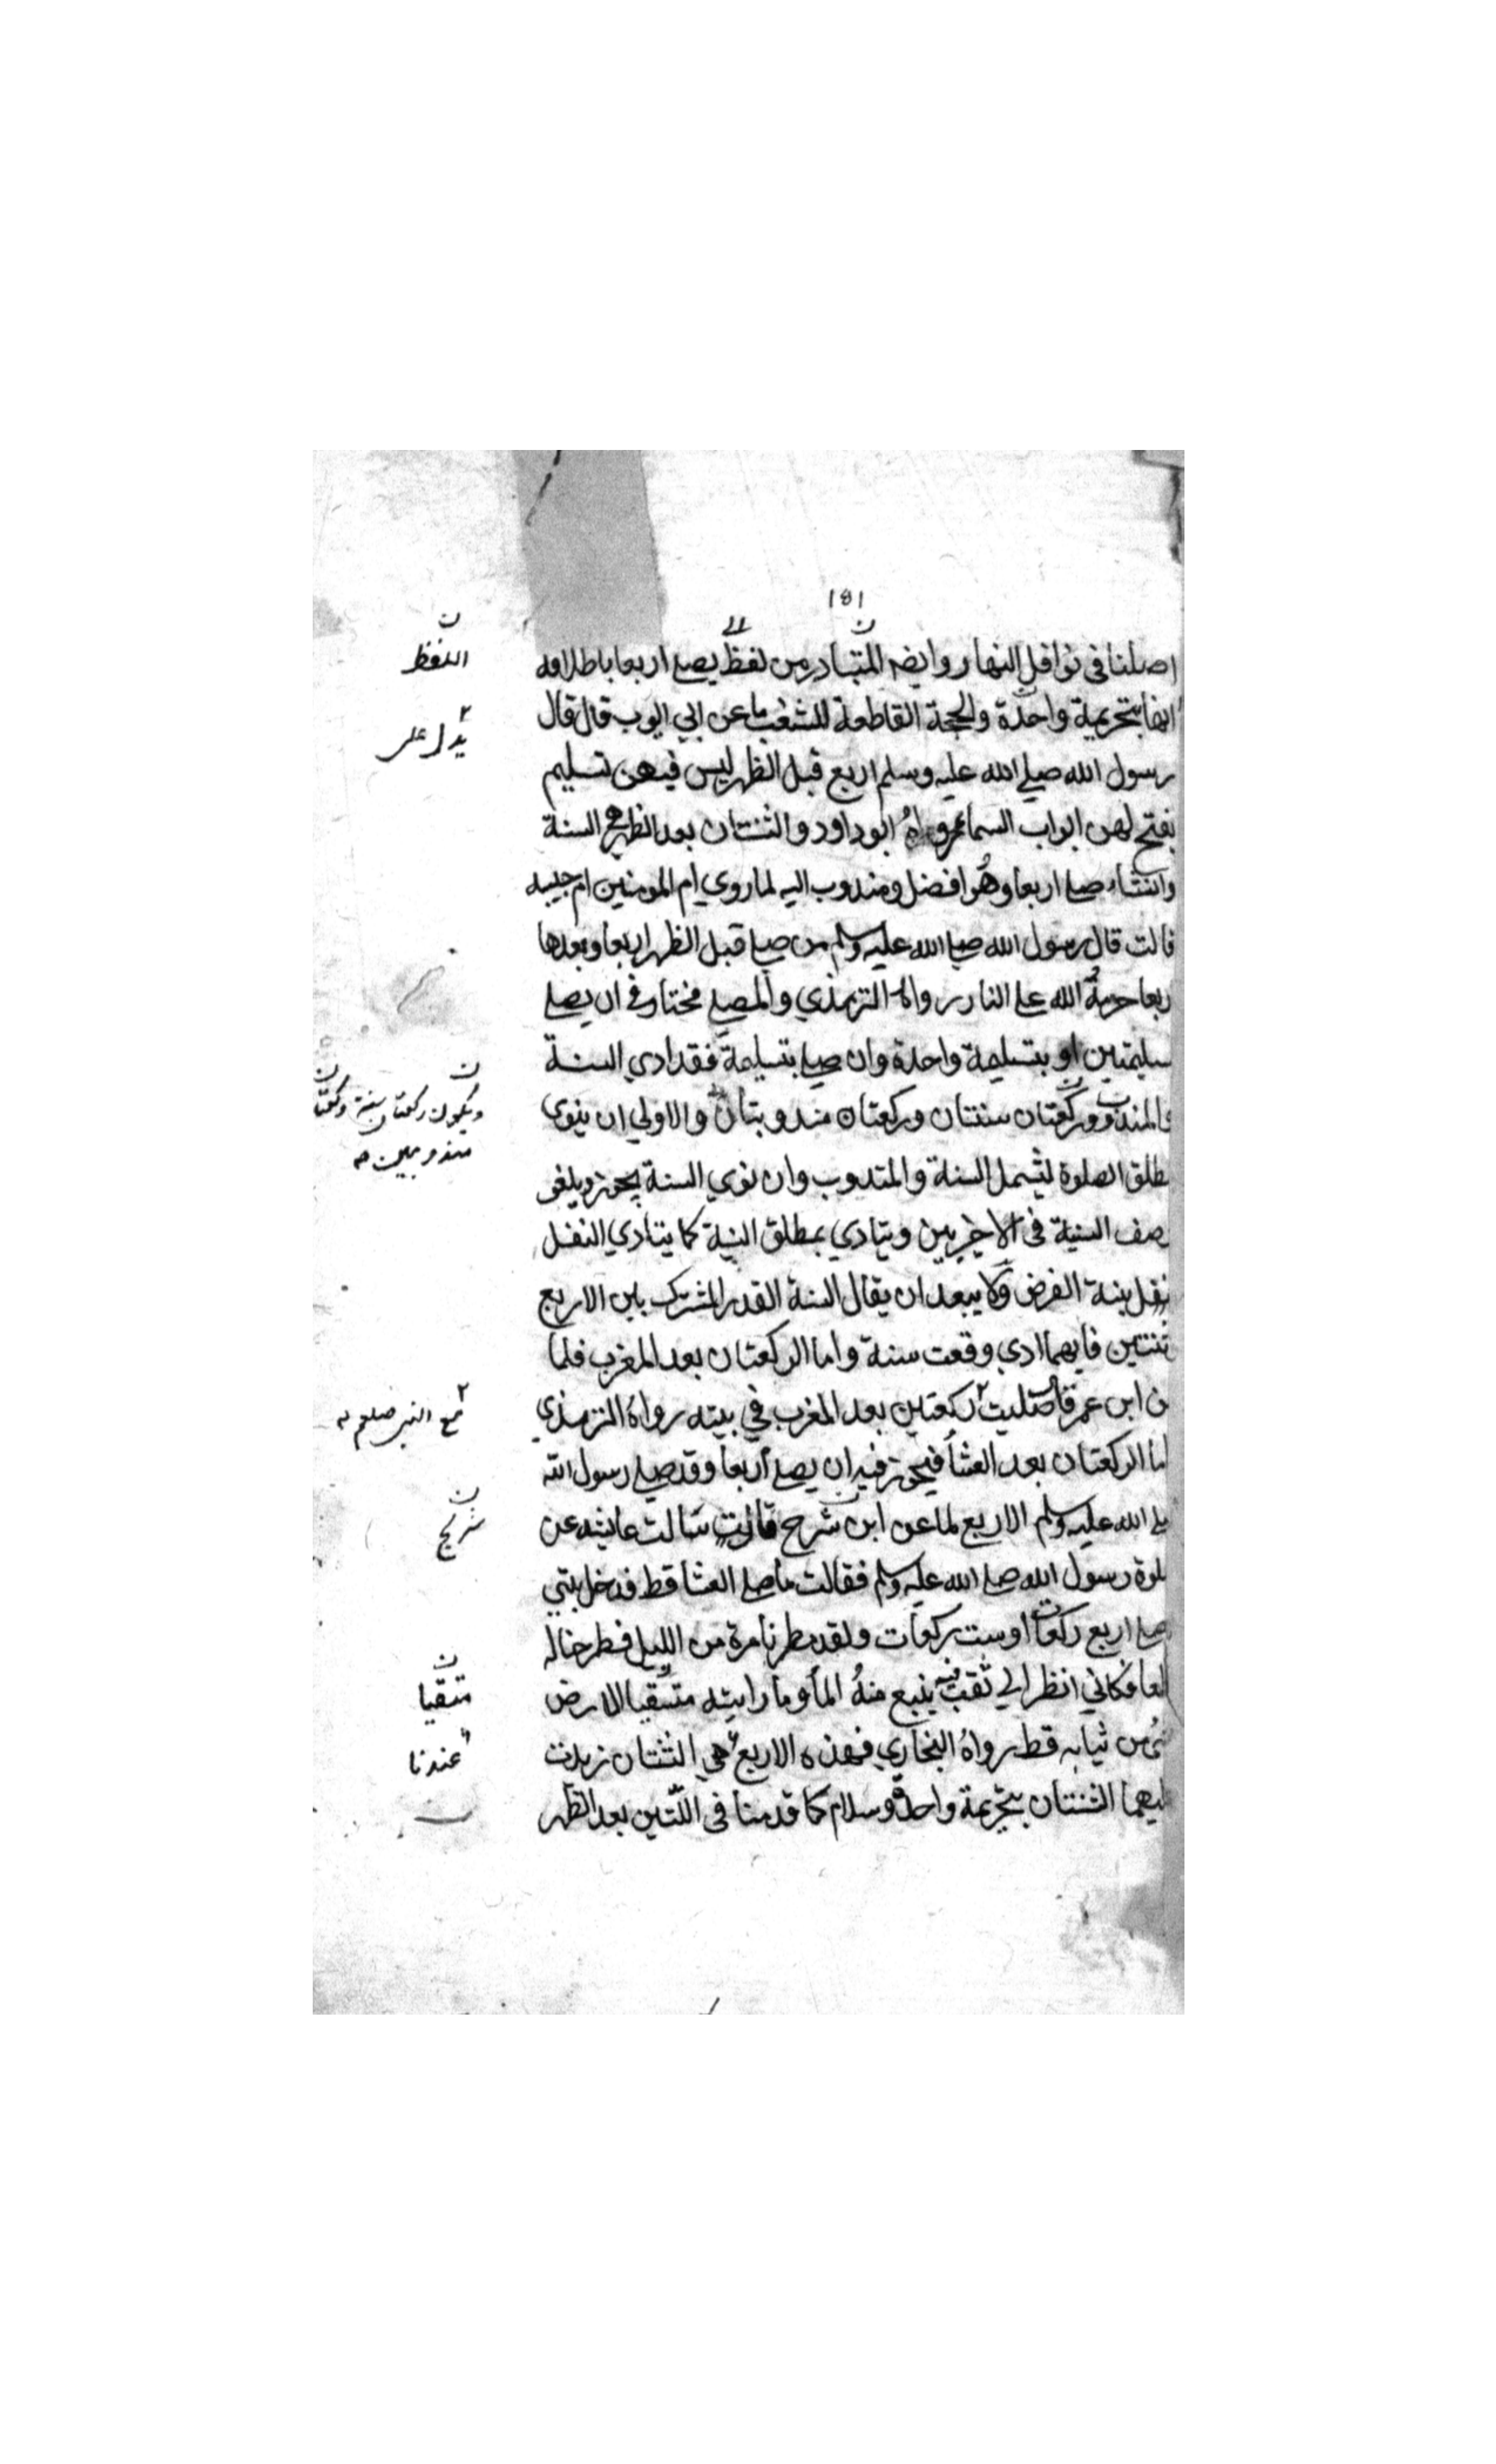 ١٥١
اصلنا في نوافل النهار وايضه المتبادر من لفظ يصلے اربعا باطلاقه
انها بتحريمة واحدة والحجة القاطعة للشغب ما عن ابي ايوب قال قال
رسول الله صلے الله عليه وسلم اربع قبل الظهر ليس فيهن تسليم
يفتح لهن ابواب السما رواه ابو داود والثنتان بعد الظهر هي السنة
وان شاء صلے اربعا وهو افضل ومندوب اليه لما روي ام المومنين ام حبيبه
قالت قال رسول الله صلے الله عليه وسلم من صلے قبل الظهر اربعا وبعدها
ربعا حرمه الله علے النار رواه الترمذي والمصلے مختار في ان يصلے
سليمتين او بتسليمة واحدة وان صلے بتسليمة فقد ادي السنة
والمندوب وركعتان سنتان وركعتان مندوبتان والاولي ان ينوي
طلق الصلوة ليشمل السنة والمندوب وان نوي السنة يجوز ويلغی
صف السنية في الاخريين ويتادي بمطلق النية كما يتادي النفل
نفل بنية الفرض ولا يبعد ان يقال السنة القدر المشترك بين الاربع
ثنتين فايهما ادي وقعت سنة واما الركعتان بعد المغرب فلما
ن ابن عمر قال صليت ركعتين بعد المغرب في بيته رواه الترمذي
اما الركعتان بعد العشا فيجوز فيه ان يصلے اربعا وقد صلے رسول الله
لے الله عليه وسلم الاربع لما عن ابن شرح قالت سالت عايشه عن
لوة رسول الله صلے الله عليه وسلم فقالت ما صلے العشا قط فدخل بيتي
صلے اربع ركعات او ست ركعات ولقد مطرنا مرة من الليل فطرحنا له
لعا فكاني انظر الي ثقب فيه ينبع منه الما وما رايته متقيا الارض
شي من ثيابه قط رواه البخاري فهذه الاربع هي الثنتان زيدت
ليهما الثنتان بتحريمة واحدة وسلام كما قدمنا في اللتين بعد الظهر
اللفظ
يدل علی
ويكون ركعتان سنة وركعتا
مندوبين
مع النبي صلعم
شريح
متقيا
عندنا